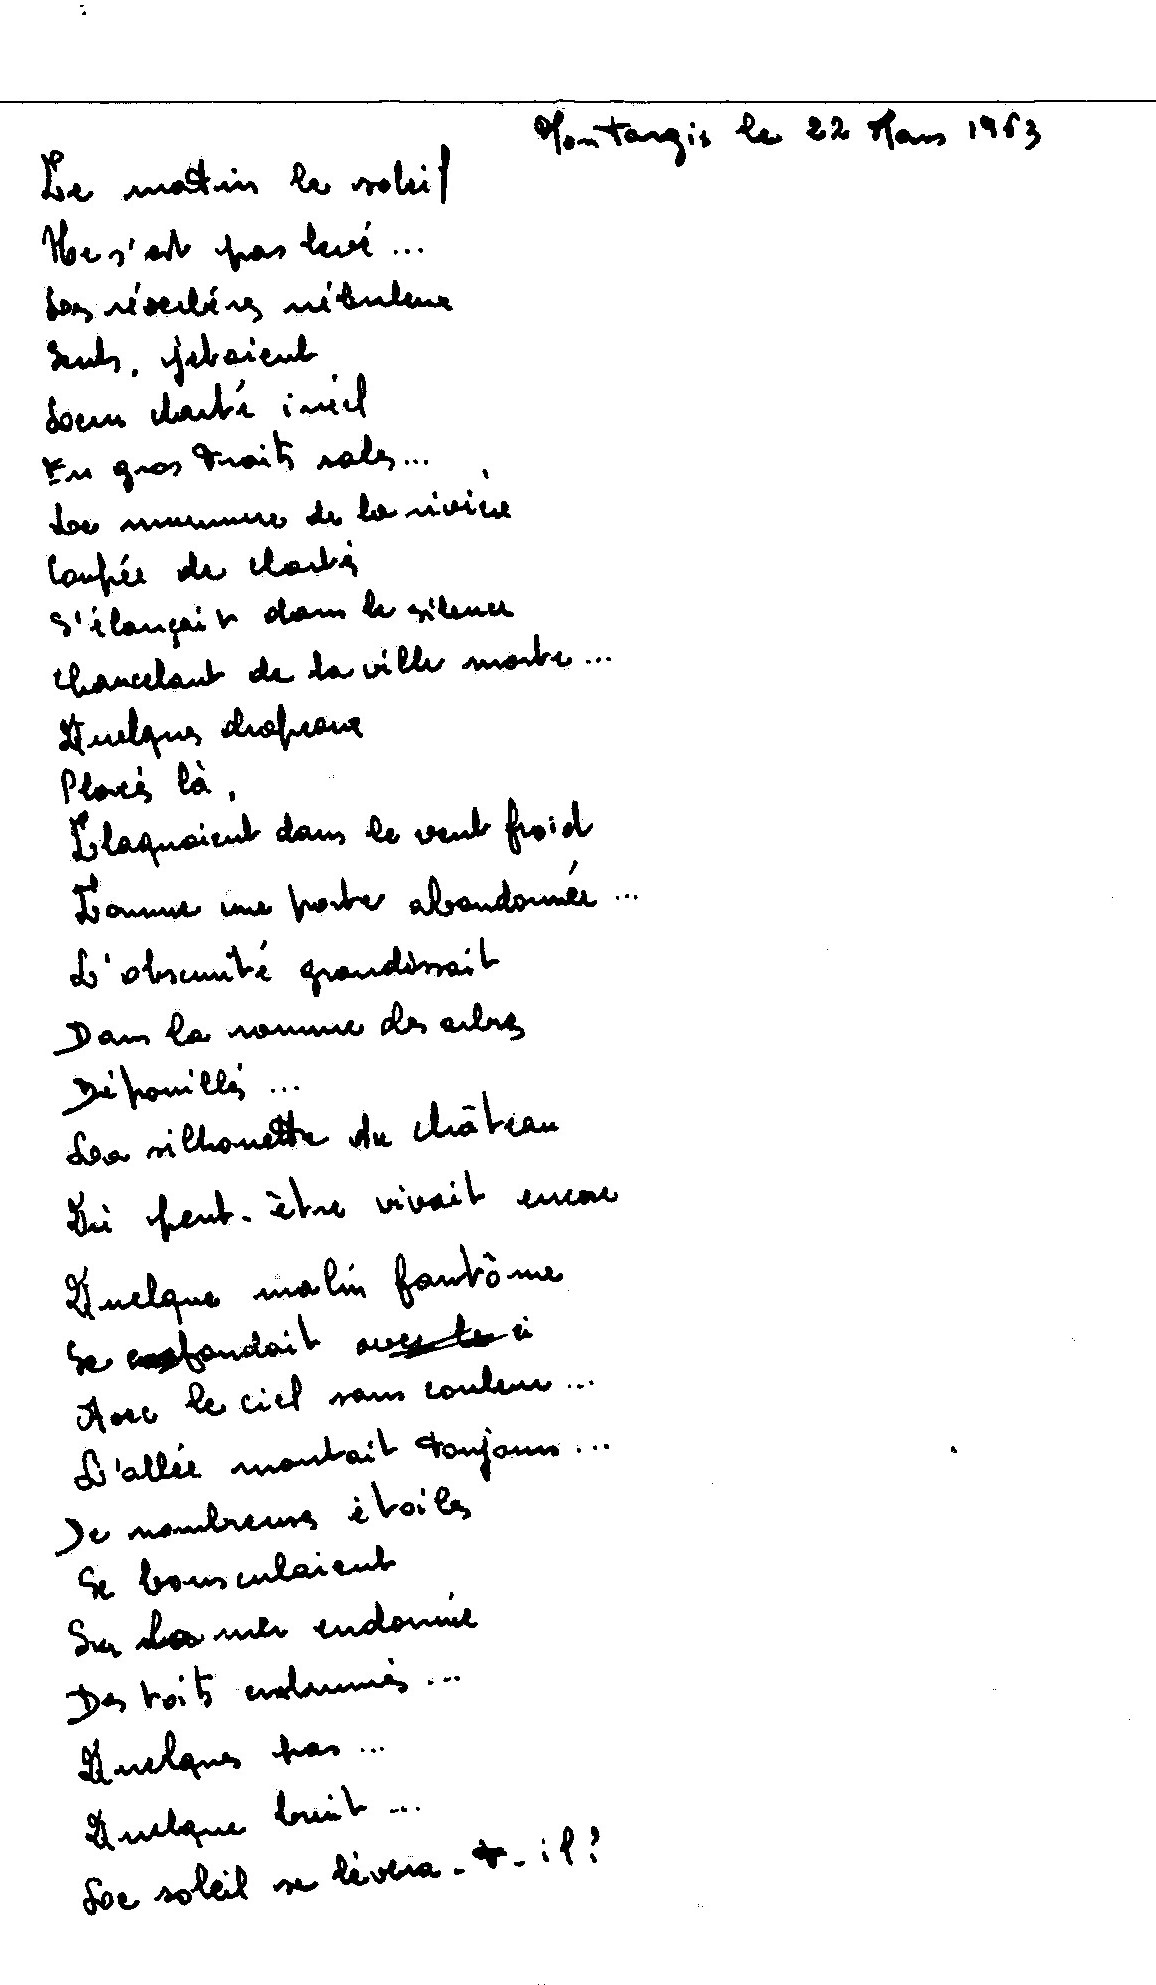 Montargis le 22 Mars 1963
Ce matin le soleil
Ne s'est pas levé...
Les réverbères nébuleux
Seuls, jetaient
Leur clarté
En gros traits sales...
Le murmure de la rivière
Coupée de clartés
S'élançait dans le silence
Chancelant de la ville morte...
Quelques drapeaux
Placés là,
Claquaient dans le vent froid
Comme une porte abandonnée...
L'obscurité grandissait
Dans la ramure des arbres
Dépouillés...
La silhouette du château
Où peut-être vivait encore
Quelque malin fantôme
Se confondait
Avec le ciel sans couleur...
L'allée montait toujours...
De nombreuses étoiles
Se bousculaient
Sur la mer endormie
Des toits embrumés...
Quelques pas...
Quelque bruit...
Le soleil se lèvera-t-il?